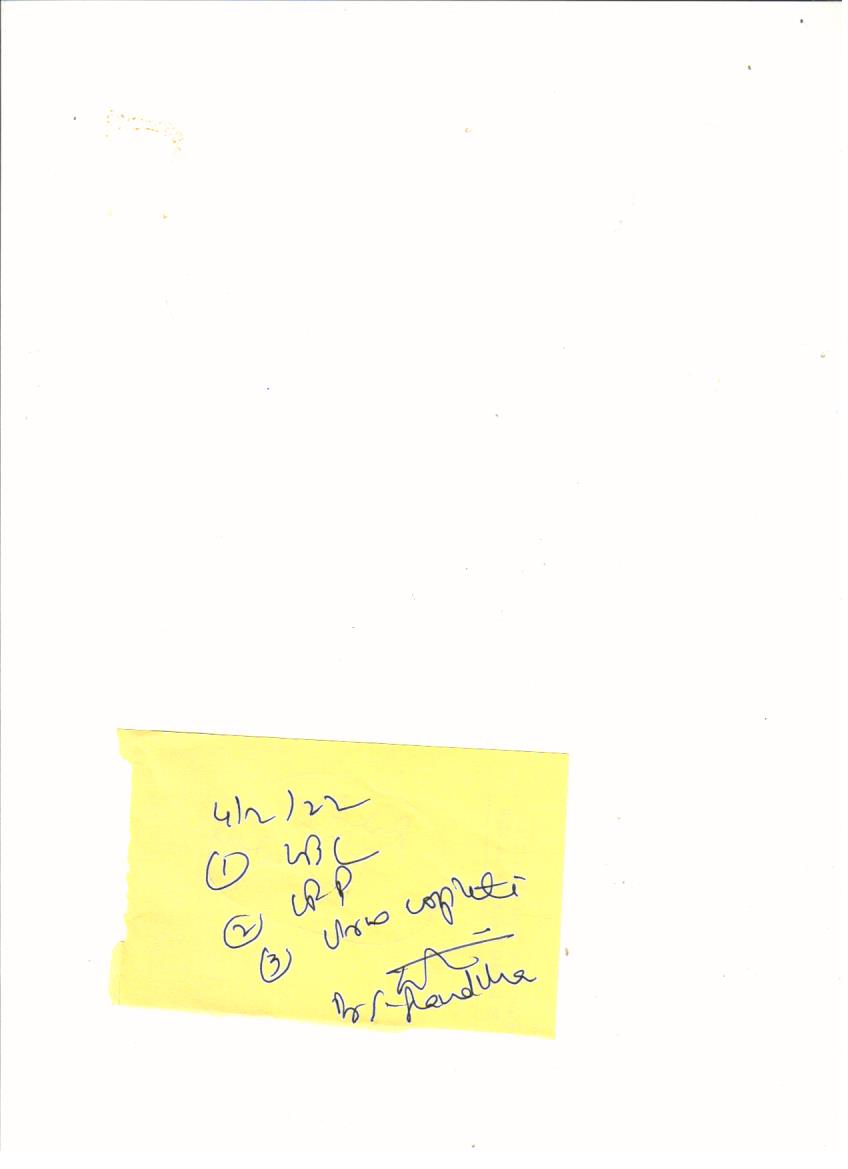 4/2/22
① CBC
② CRP
③ Urine complete
Dr S.